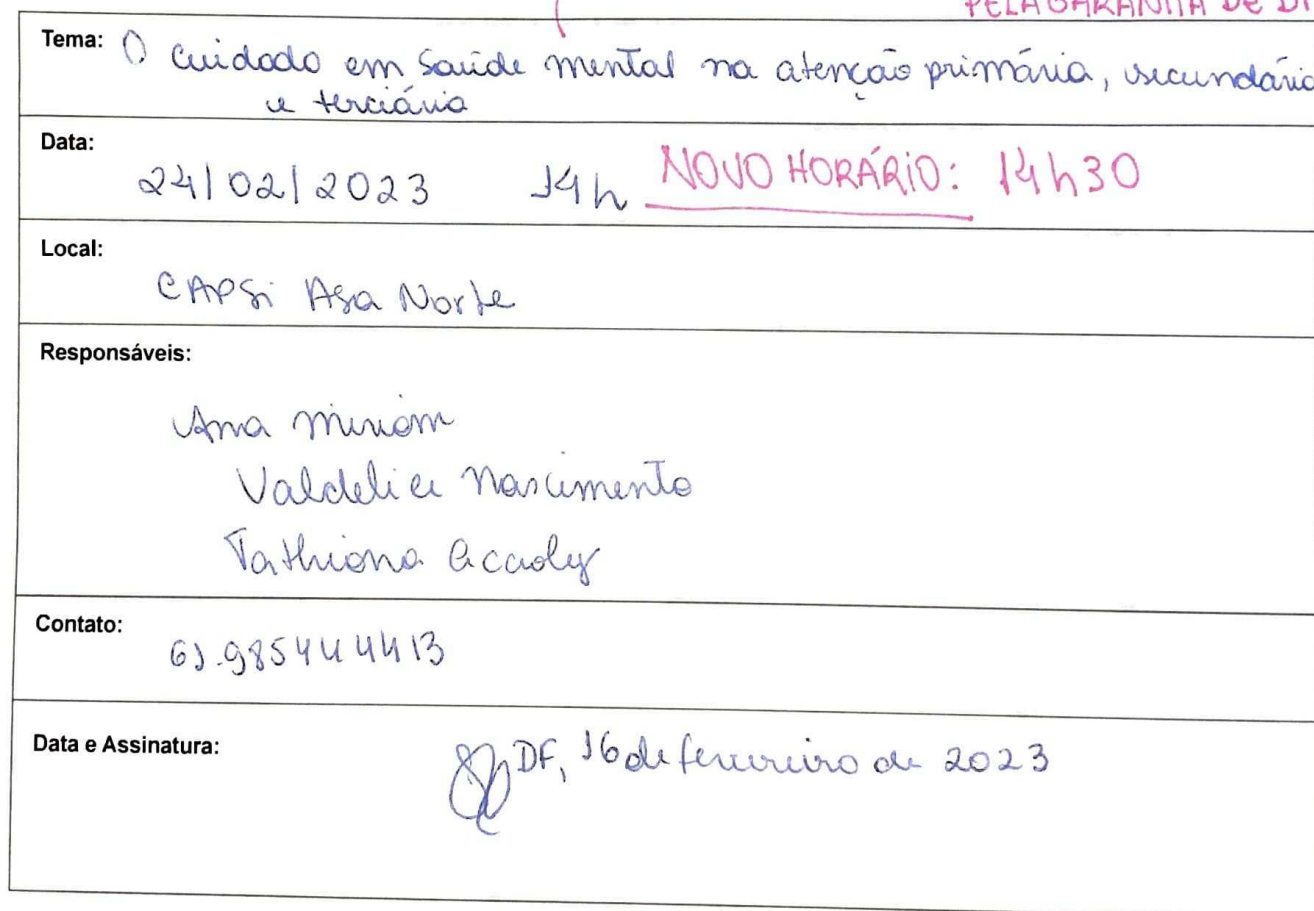 PELA GARANTIA DE
Tema: O cuidado em saúde mental na atenção primária, secundária
e terciária
Data:
24/02/2023 14h NOVO HORÁRIO: 14h30
Local:
CAPSi Asa Norte
Responsáveis:
Ana Miriam
Valdelice Nascimento
Tathiana Accioly
Contato:
61.985444413
Data e Assinatura:
DF, 16 de fevereiro de 2023